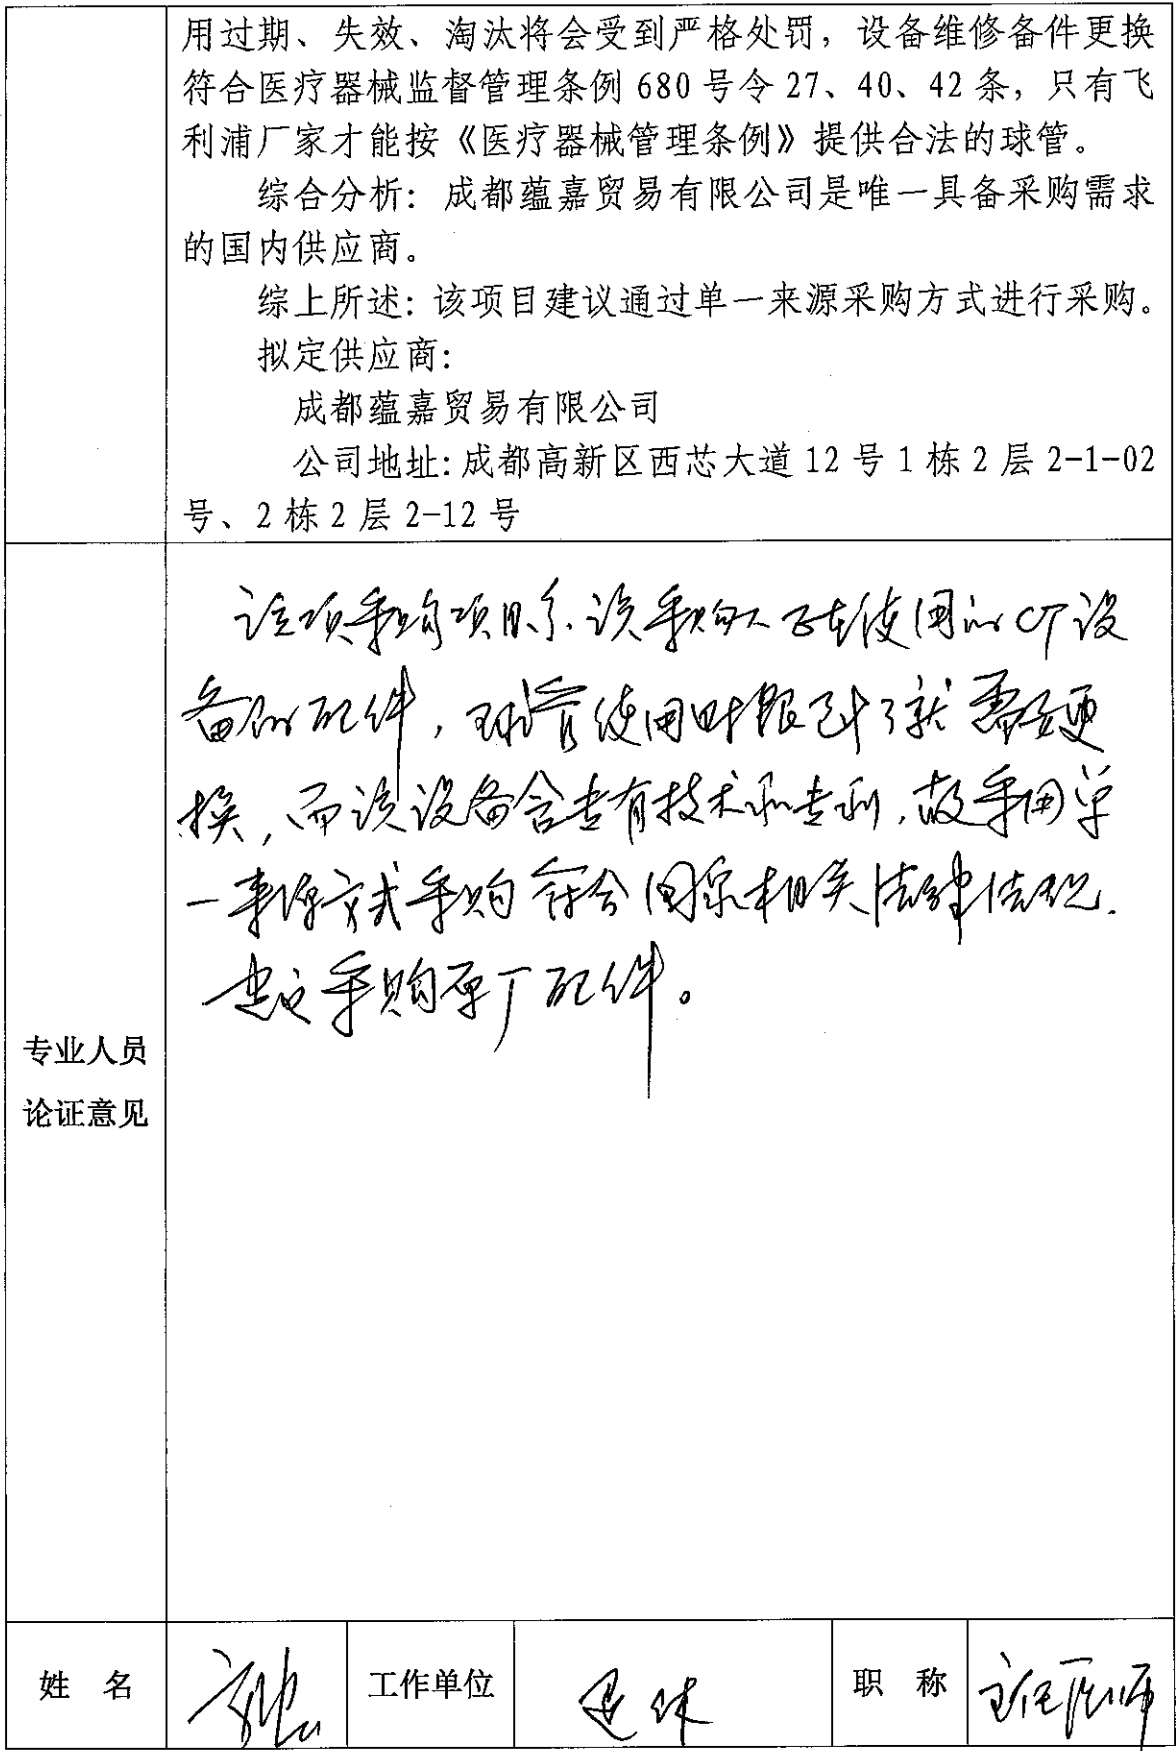 用过期、失效、淘汰将会受到严格处罚，设备维修备件更换
符合医疗器械监督管理条例 680 号令 27、40、42 条，只有飞
利浦厂家才能按《医疗器械管理条例》提供合法的球管。
综合分析：成都蕴嘉贸易有限公司是唯一具备采购需求
的国内供应商。
综上所述：该项目建议通过单一来源采购方式进行采购。
拟定供应商：
成都蕴嘉贸易有限公司
公司地址：成都高新区西芯大道 12 号 1 栋 2 层 2-1-02
号、2 栋 2 层 2-12 号
该项采购项目系该采购人正在使用的CT设
备的配件，球管使用时限到了就需要更
换，而该设备含专有技术和专利，故采用单
一来源方式采购符合国家相关法律法规.
建议采购原厂配件。
专业人员
论证意见
姓 名
工作单位
退休
职 称
主任医师